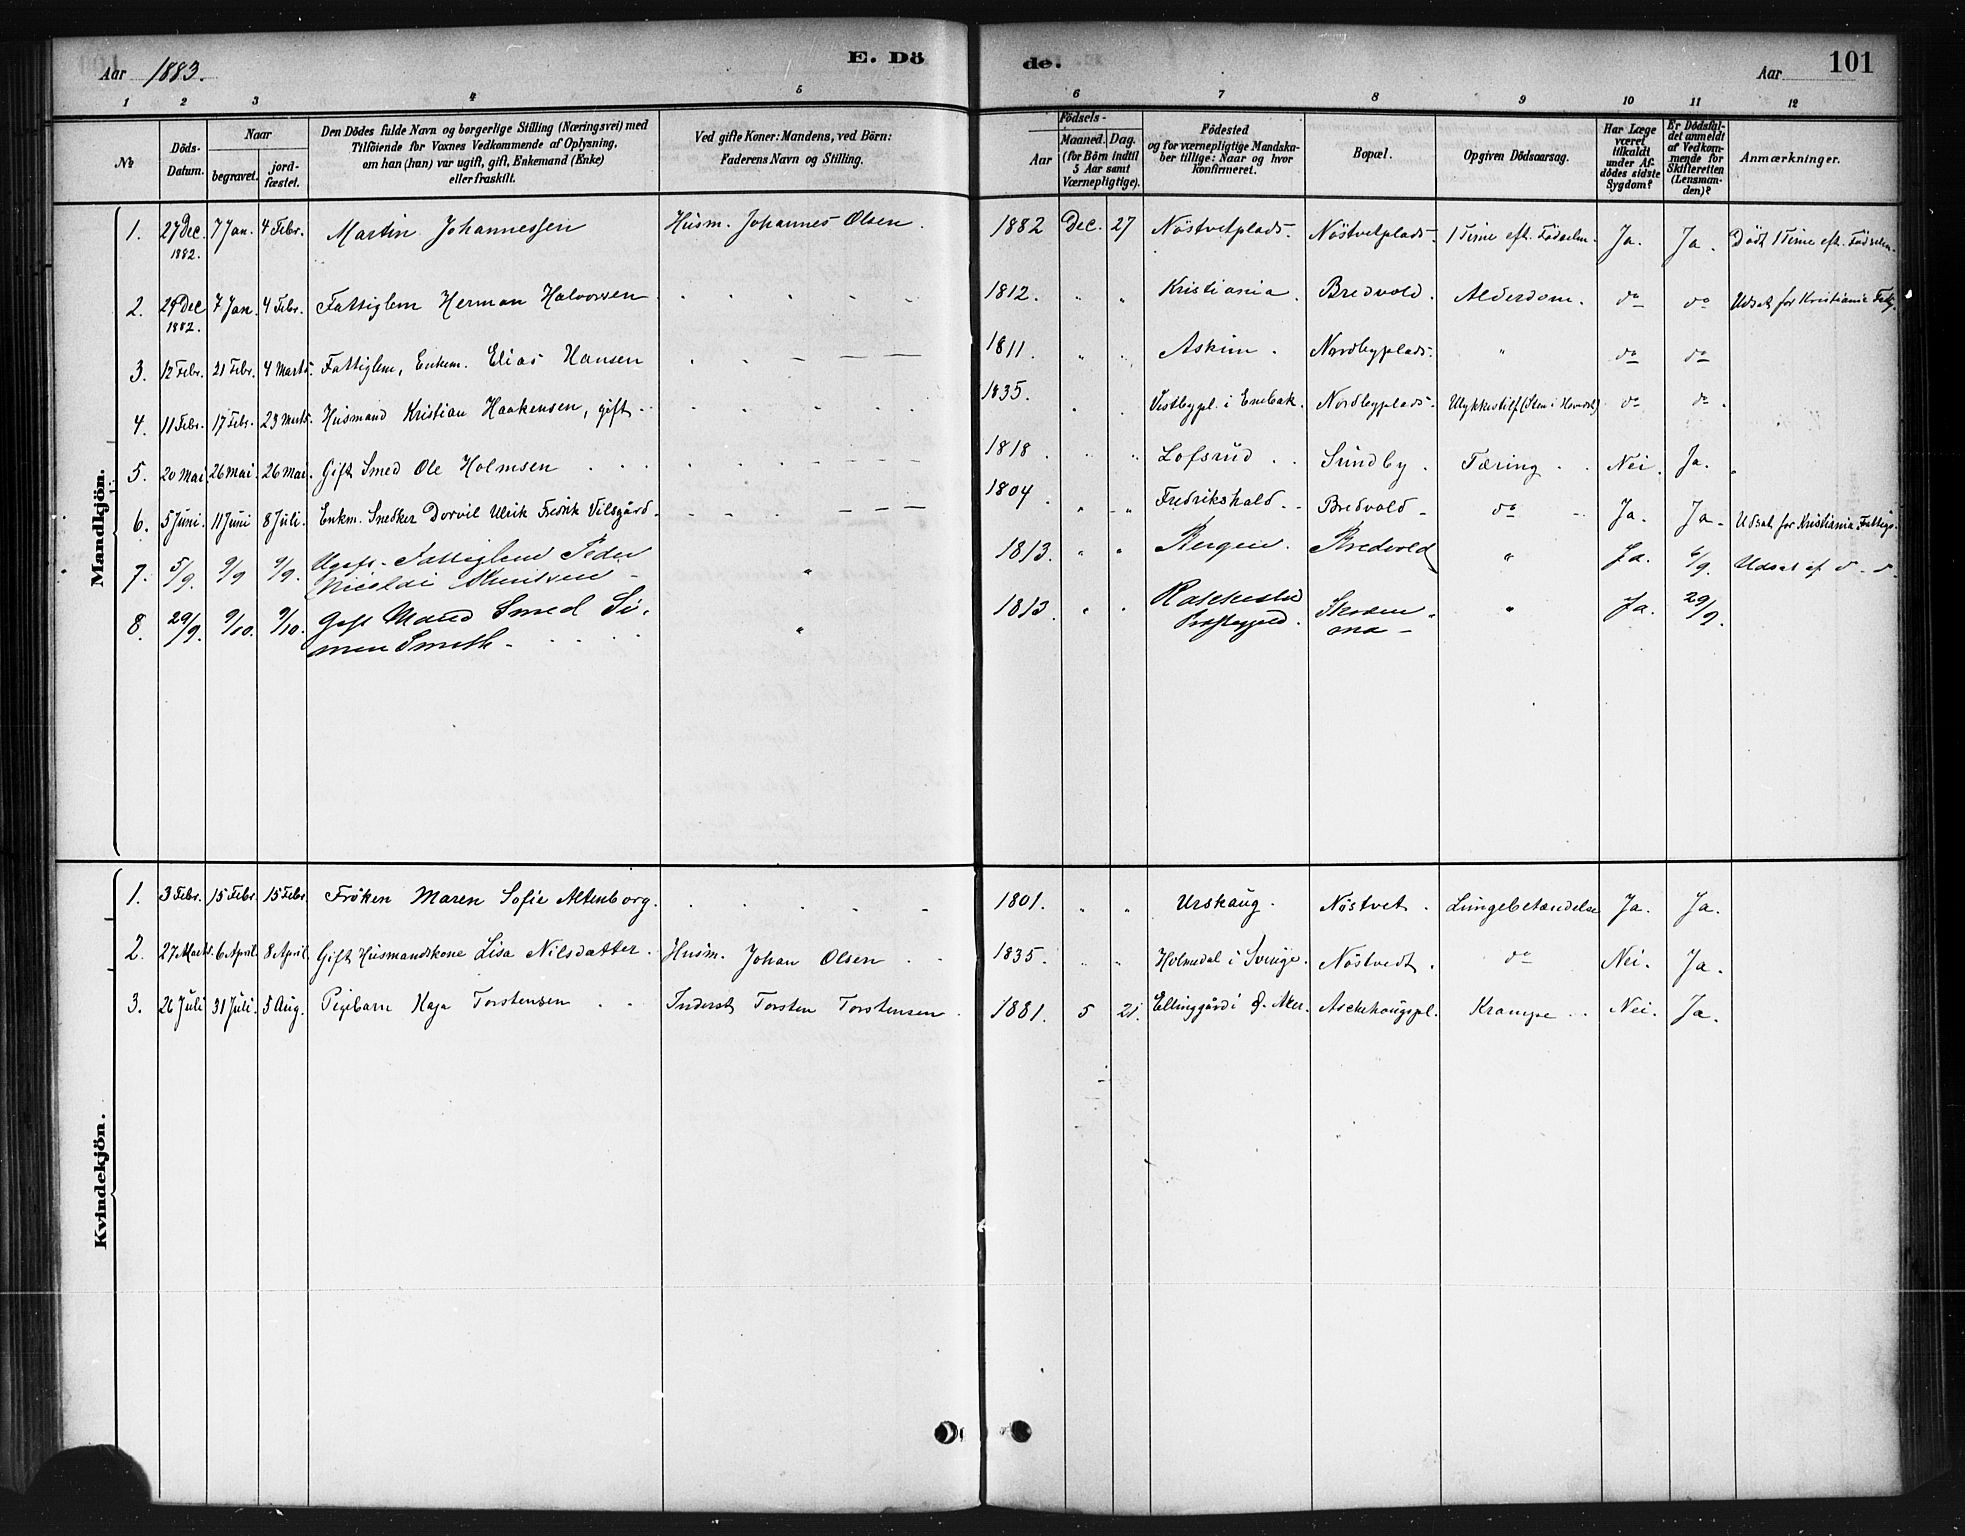 Aar 1883.
E. Dö
de.
Aar
101
1 2 3 4 5 6 7 8 9 10 11 12
№
Döds-Datum.
Naar
begravet.
jord-fæstet.
Den Dödes fulde Navn og borgerlige Stilling (Næringsvei) med
Tilföiende for Voxnes Vedkommende af Oplysning,
om han (hun) var ugift, gift, Enkemand (Enke)
eller fraskilt.
Ved gifte Koner: Mandens, ved Börn:
Faderens Navn og Stilling.
Födsels-
Aar
Maaned. Dag.
(for Börn indtil
5 Aar samt
Værnepligtige).
Födested
og for værnepligtige Mandska-
ber tillige: Naar og hvor
konfirmeret.
Bopæl.
Opgiven Dödsaarsag.
Har Læge
været
tilkaldt
under Af-
dödes sidste
Sygdom?
Er Dödsfal-
det anmeldt
af Vedkom-
mende for
Skifteretten
(Lensman-
den)?
Anmærkninger.
Mandkjön.
1. 27 Dec. 1882. 7 Jan. 4 Febr. Martin Johannessen Husm. Johannes Olsen. 1882 Dec. 27 Nöstvetplads. Nöstvetplads. 1 Time eft. Födselen. Ja. Ja. Död 1 Time eft. Födselen.
2. 29 Dec 1882. 7 Jan. 4 Febr. Fattiglem Herman Halvorsen 1812. " " Kristiania. Bredvold. Alderdom. do do Udsat for Kristiania
3. 12 Febr. 21 Febr. 4 Marts. Fattiglem, Enkem. Elias Hansen 1811 " " Askim. Nordbyplads. " do do
4. 11 Febr. 17 Febr. 23 Marts. Husmand Kristian Haakensen, gift. 1835. Vestbypl. i Enebak. Nordbyplads. do do
5. 20 Mai 26 Mai. 26 Mai. Gift Smed Ole Holmsen 1818. " " Lofsrud. Sundby. Tæring. Nei. Ja.
6. 5 Juni. 11 Juni 8 Juli. Enkm. Snedker Dorvil Ulrik Fredrik Vilsgård. 1804 " " Fredrikshald. Bredvold do Ja. Ja. Udsat for Kristiania Fattigv.
7. 5/9. 9/9 9/9. Ugift. Fattiglem Peder
Nicolai Knutsen " 1813. " " Bergen. Bredvold " Ja. 6/9. Udsat af d. d.
8. 29/9. 9/10. 9/10. Gift Mand Smed Si-
men Smith. " 1813. " " Rakkestad " Ja. 29/9.
Kvindekjön.
1. 3 Febr. 15 Febr. 15 Febr. Fröken Maren Sofie Altenborg. 1801. " " Urskaug. Nöstvet. Lungebetændelse Ja. Ja.
2. 27 Marts. 6 April. 8 April. Gift Husmandskone Lisa Nilsdatter. Husm. Johan Olsen 1835. " " Holmedal i Sverige. Nöstvedt. do Nei. Ja.
3. 26 Juli 31 Juli. 5 Aug. Pigebarn Kaja Torstensen Inderst Torsten Torstensen. 1881. 5 21. Ellinggård i Ö. Aker. Aschehougspl. Krampe Nei. Ja.